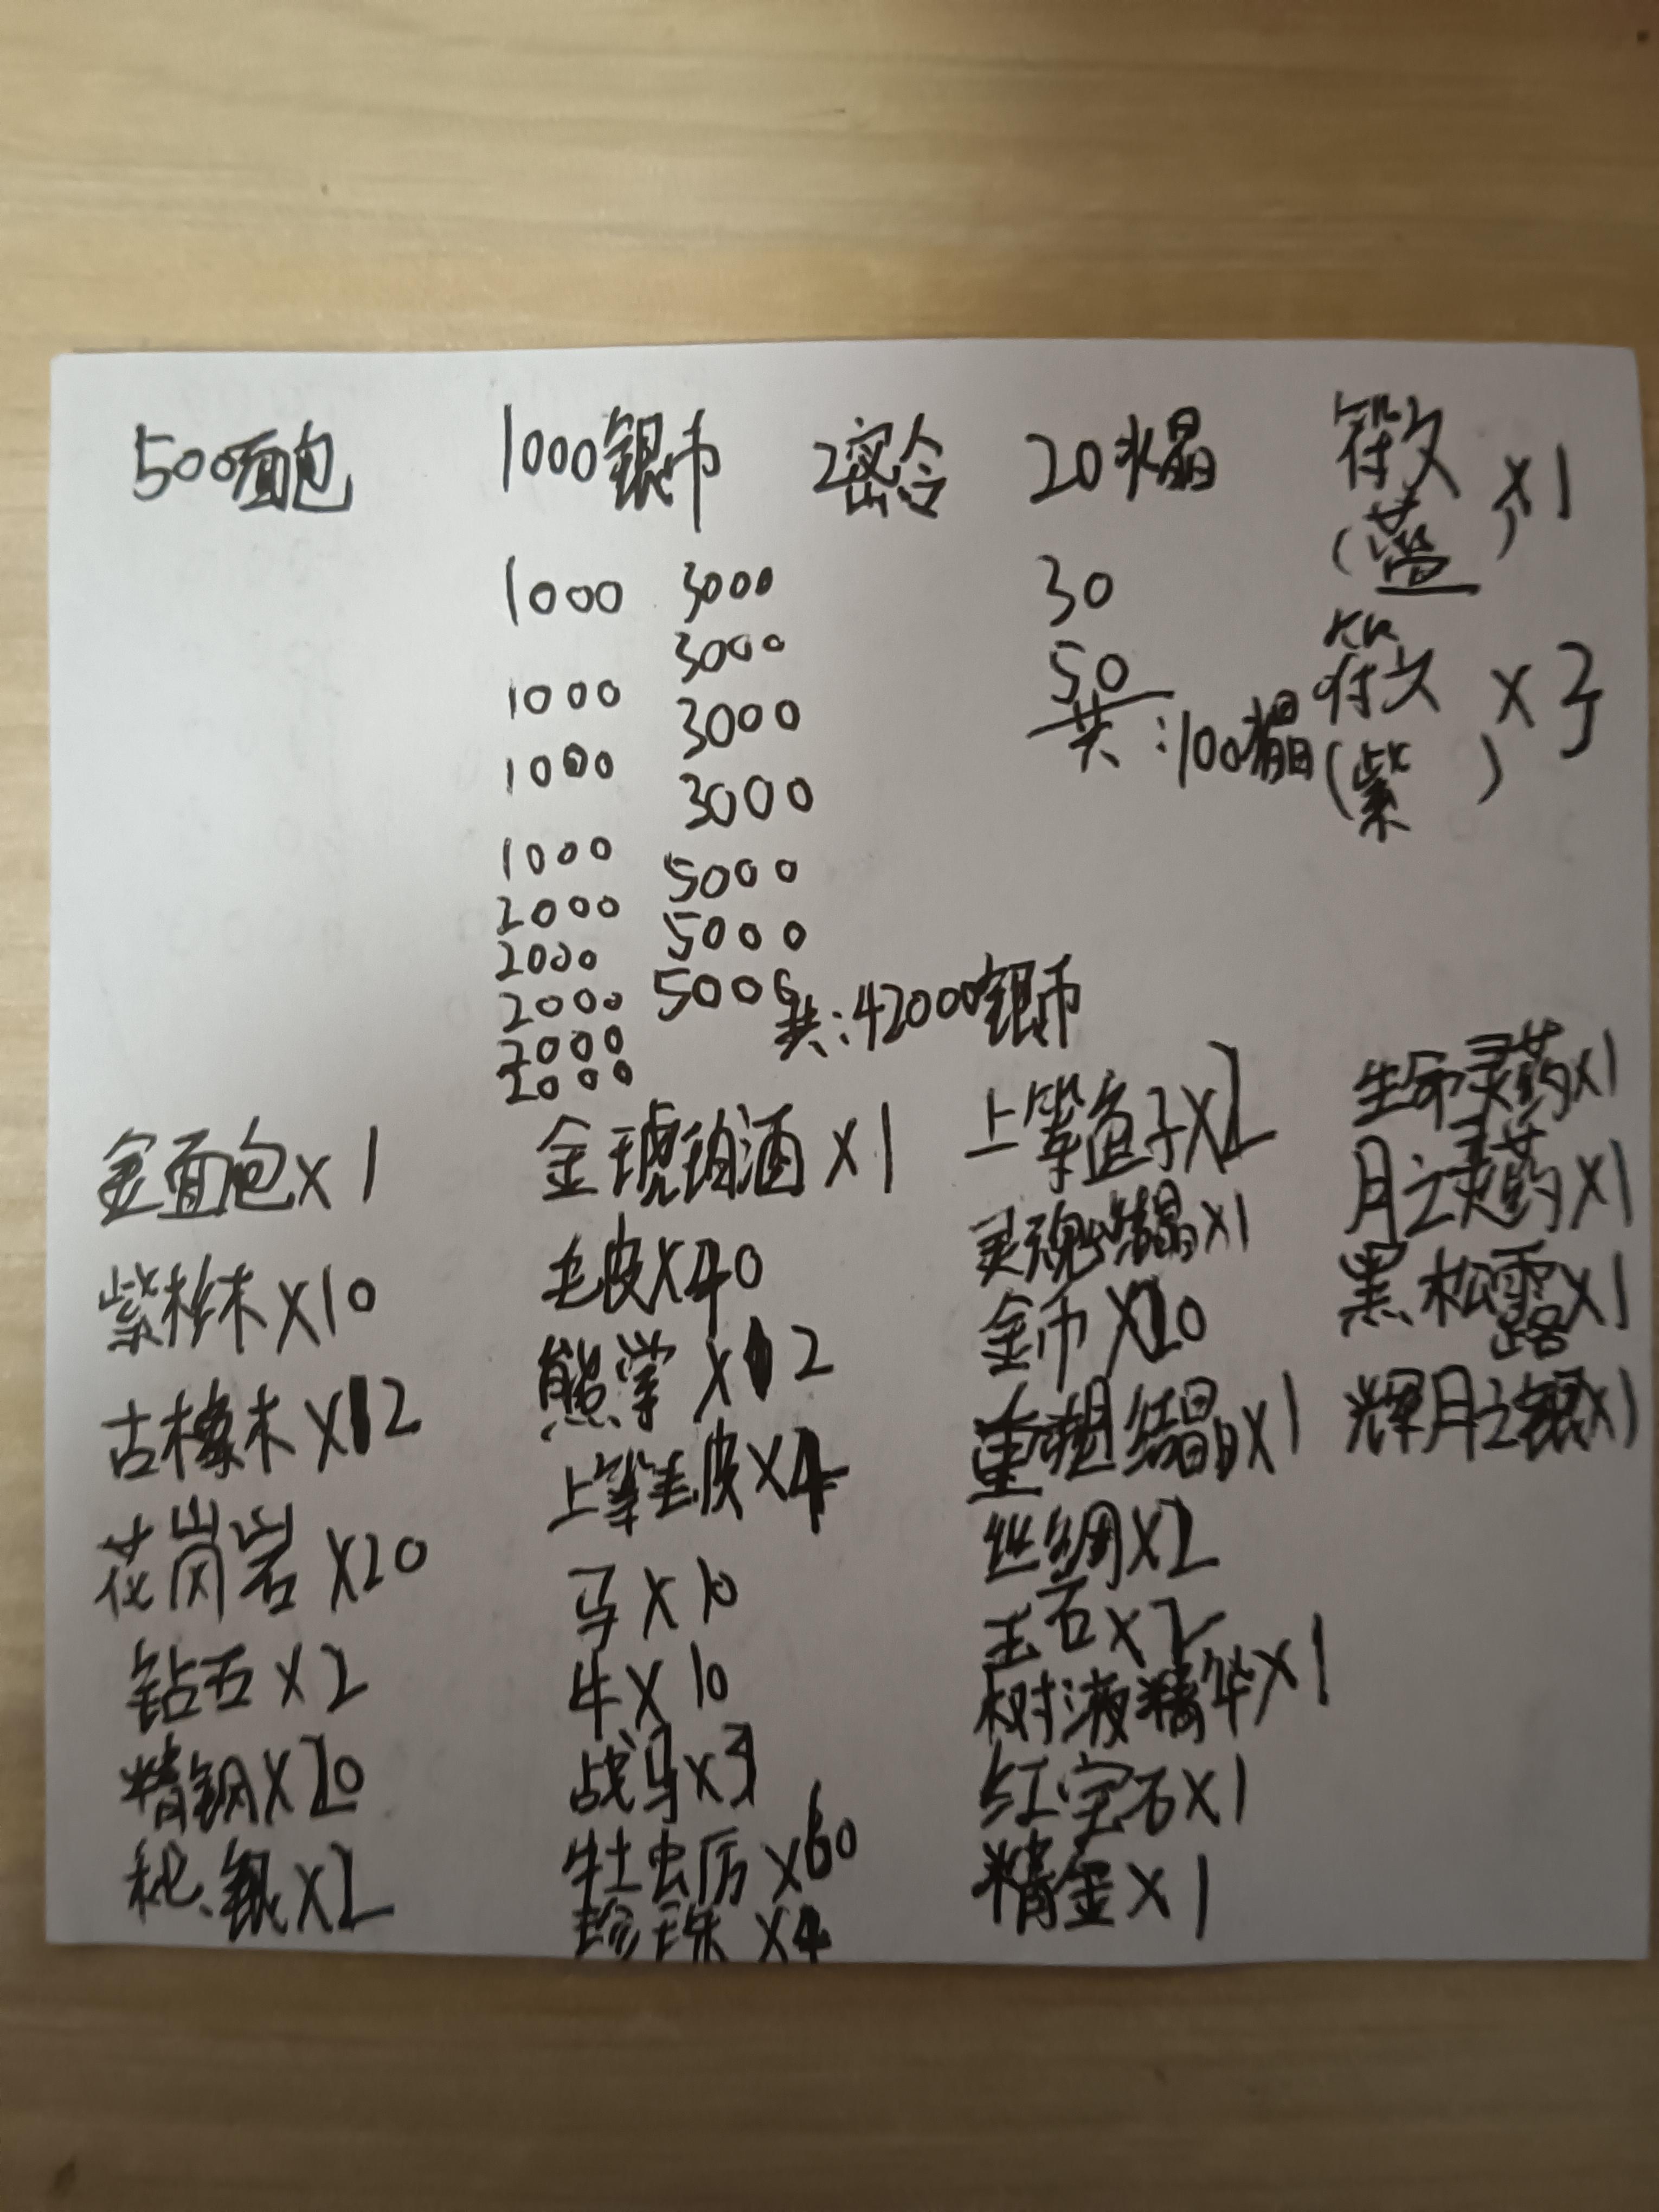 500面包
1000银币
1000
1000
1000
1000
2000
2000
2000
2000
2000
3000
3000
3000
3000
5000
5000
5000
共:42000银币
2密令
20水晶
30
50
共:100水晶
符文
(蓝)
x1
符文
(紫)
x3
金面包x1
紫杉木x10
古橡木x12
花岗岩x20
钻石x2
精钢x20
秘银x2
金琥珀酒x1
毛皮x40
熊掌x12
上等毛皮x4
马x10
牛x10
战马x3
牡蛎x60
珍珠x4
上等鱼子x2
灵魂结晶x1
金币x20
重塑结晶x1
丝绸x2
玉石x2
树液精华x1
红宝石x1
精金x1
生命灵药x1
月之灵药x1
黑松露x1
辉月之银x1